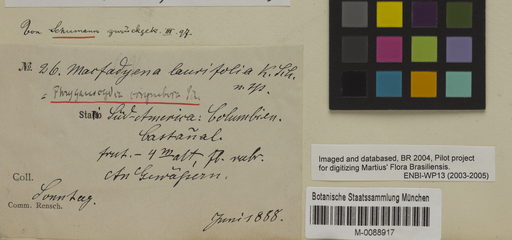 Von Schumann zurückgek. III. 97.
No. 26. Macfadyena laurifolia K. Sch.
n. sp.
= Phryganocydia corymbosa
Süd-America: Columbien.
Castañal.
frut. - 4 m alt, fl. rubr.
An Gewässern.
Coll.
Sonntag.
Comm. Rensch.
Juni 1888.
Imaged and databased, BR 2004, Pilot project
for digitizing Martius' Flora Brasiliensis.
ENBI-WP13 (2003-2005)
Botanische Staatssammlung München
M-0088917